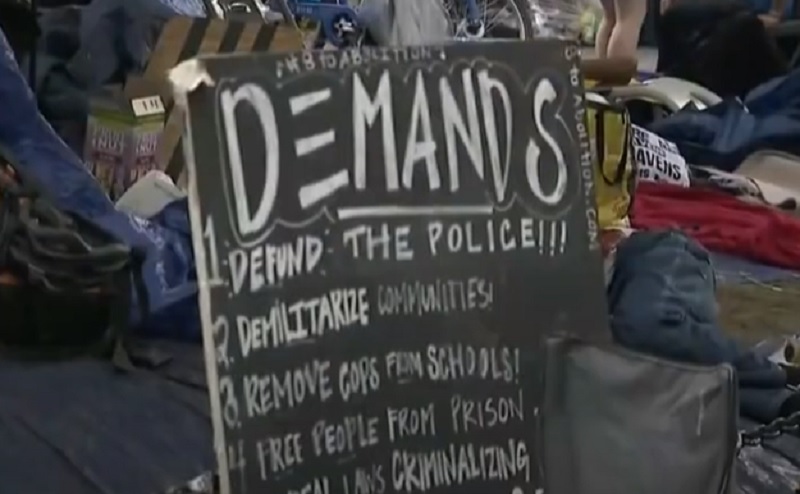 #8TOABOLITION
DEMANDS
8TOABOLITION.COM
1. DEFUND THE POLICE!!!
2. DEMILITARIZE COMMUNITIES!
3. REMOVE COPS FROM SCHOOLS!
4 FREE PEOPLE FROM PRISON.
LAWS CRIMINALIZING
14